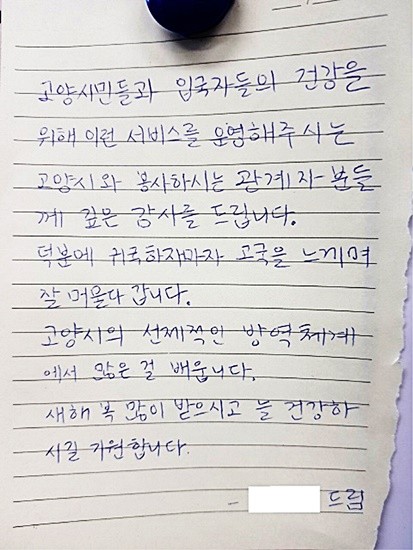 고양시민들과 입국자들의 건강을
위해 이런 서비스를 운영해주시는
고양시와 봉사하시는 관계자분들
께 깊은 감사를 드립니다.
덕분에 귀국하자마자 고국을 느끼며
잘 머물다 갑니다.
고양시의 선제적인 방역체계
에서 많은 걸 배웁니다.
새해 복 많이 받으시고 늘 건강하
시길 기원합니다.
- 드림